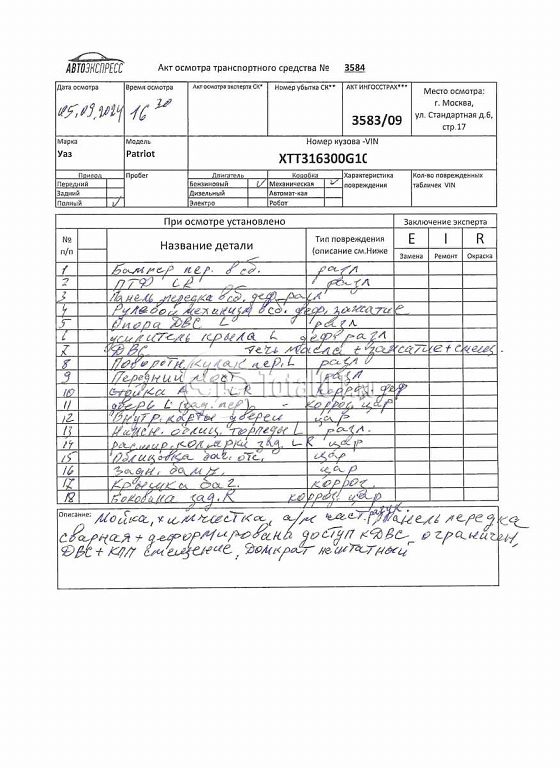 АВТОЭКСПРЕСС
Акт осмотра транспортного средства № 3584
Дата осмотра Время осмотра Акт осмотра эксперта СК* Номер убытка СК** АКТ ИНГОССТРАХ*** Место осмотра:
05.09.2024 16 30 3583/09 г. Москва,
ул. Стандартная д.6,
стр.17
Марка Модель Номер кузова -VIN
Уаз Patriot XTT316300G1
Привод Пробег Двигатель Коробка Характеристика Кол-во поврежденных
Передний Бензиновый Механическая повреждения табличек VIN
Задний Дизельный Автомат-кая
Полный Электро Робот
При осмотре установлено Заключение эксперта
№ Название детали Тип повреждения E I R
п/п (описание см.Ниже Замена Ремонт Окраска
1 Бампер пер. в сб. разл
2 ПТФ LR разл
3 Панель передка в сб. деф. разл
4 Рулевой механизм в сб. деф, зажатие
5 Опора ДВС L разл
6 усилитель крыла L деф разл
7 ДВС течь масла + зажатие + смещ.
8 Поворотн. кулак пер. L разл
9 Передний мост разл
10 стойка А LR корроз, деф
11 дверь L (зад, пер) - корроз, цар
12 Внутр. карты дверей цар
13 Нижн. облиц. торпеды L разл.
14 расшир. кол. арки зад. LR цар
15 Облицовка баг. отс. цар
16 Задн. бамп. цар
17 Крышка баг. корроз
18 Боковина зад. R корроз, цар
Описание: Мойка, химчистка, а/м част. Панель передка
сварная + деформирована доступ к ДВС ограничен,
ДВС + КПП смещение, Домкрат нештатный